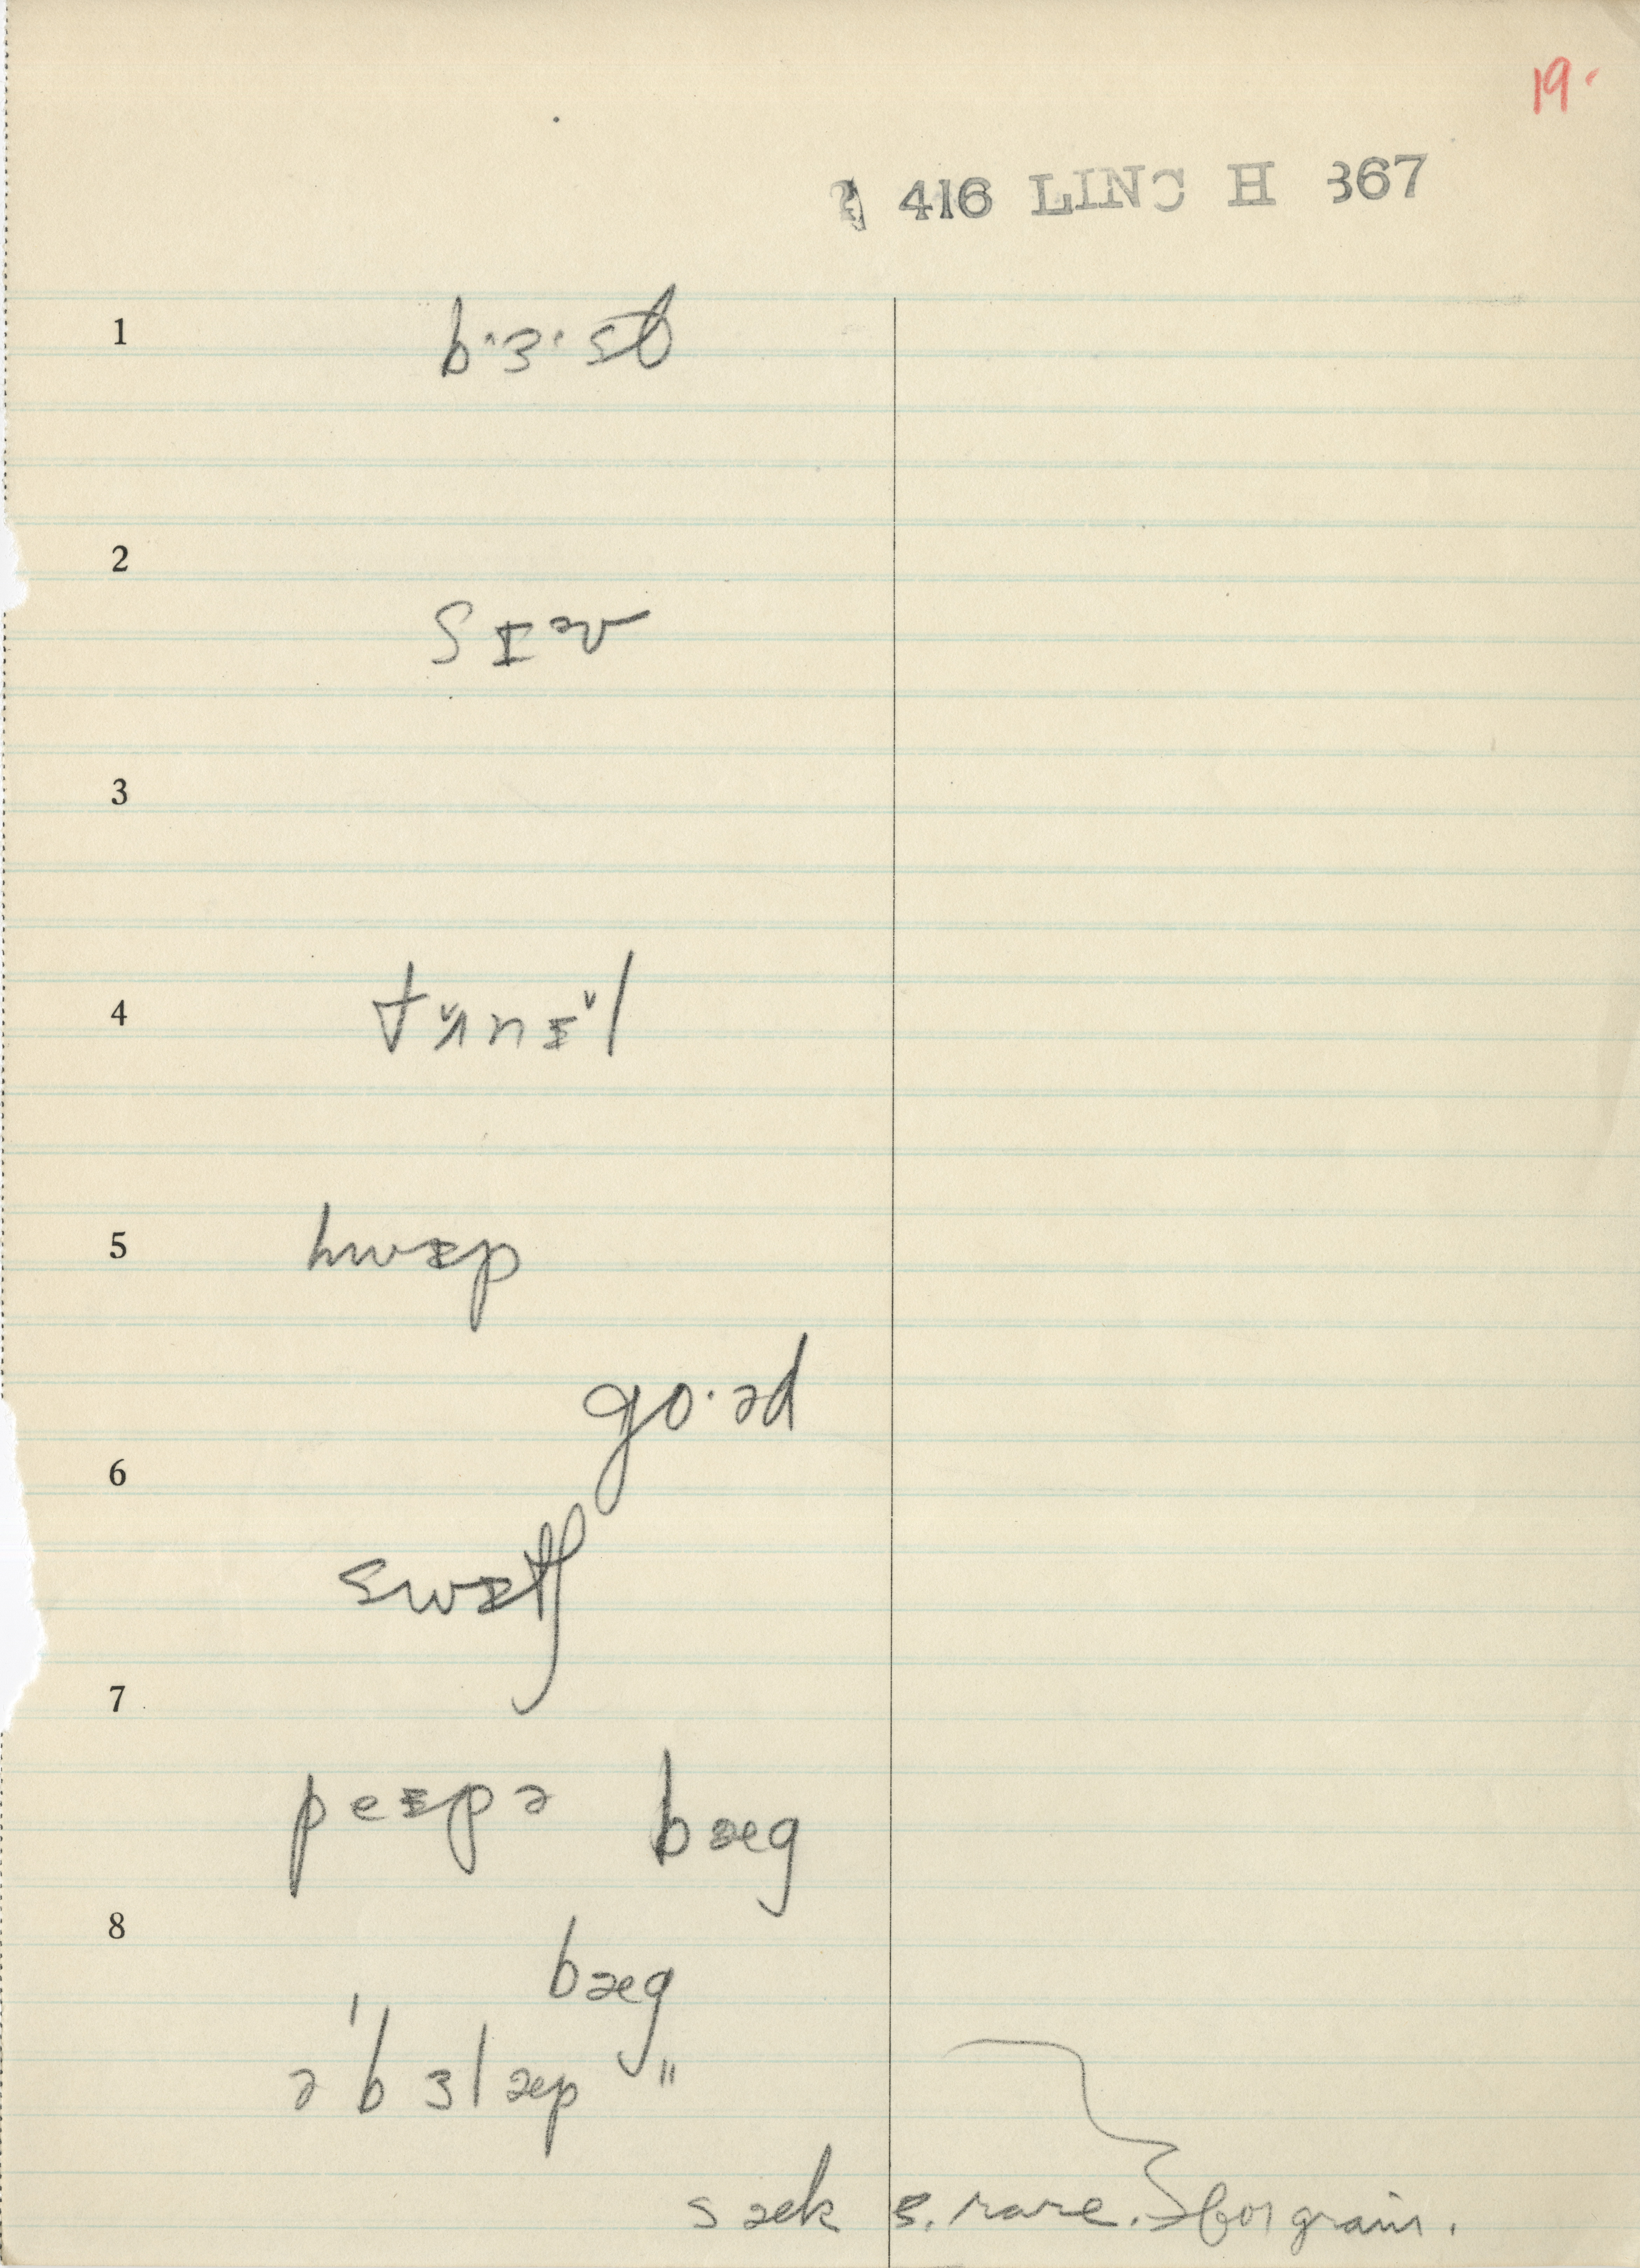 19.
416 LINC H 367
1 b·ɜ·st
2 sɪᵊv
3
4 tʌ̆nɪ̆l
5 hwɪp
go·əd
6
swɪtʃ
7
peɪpə bæg
8
bæg
ə'bɜlæp "
sæk s. rare. for grain.